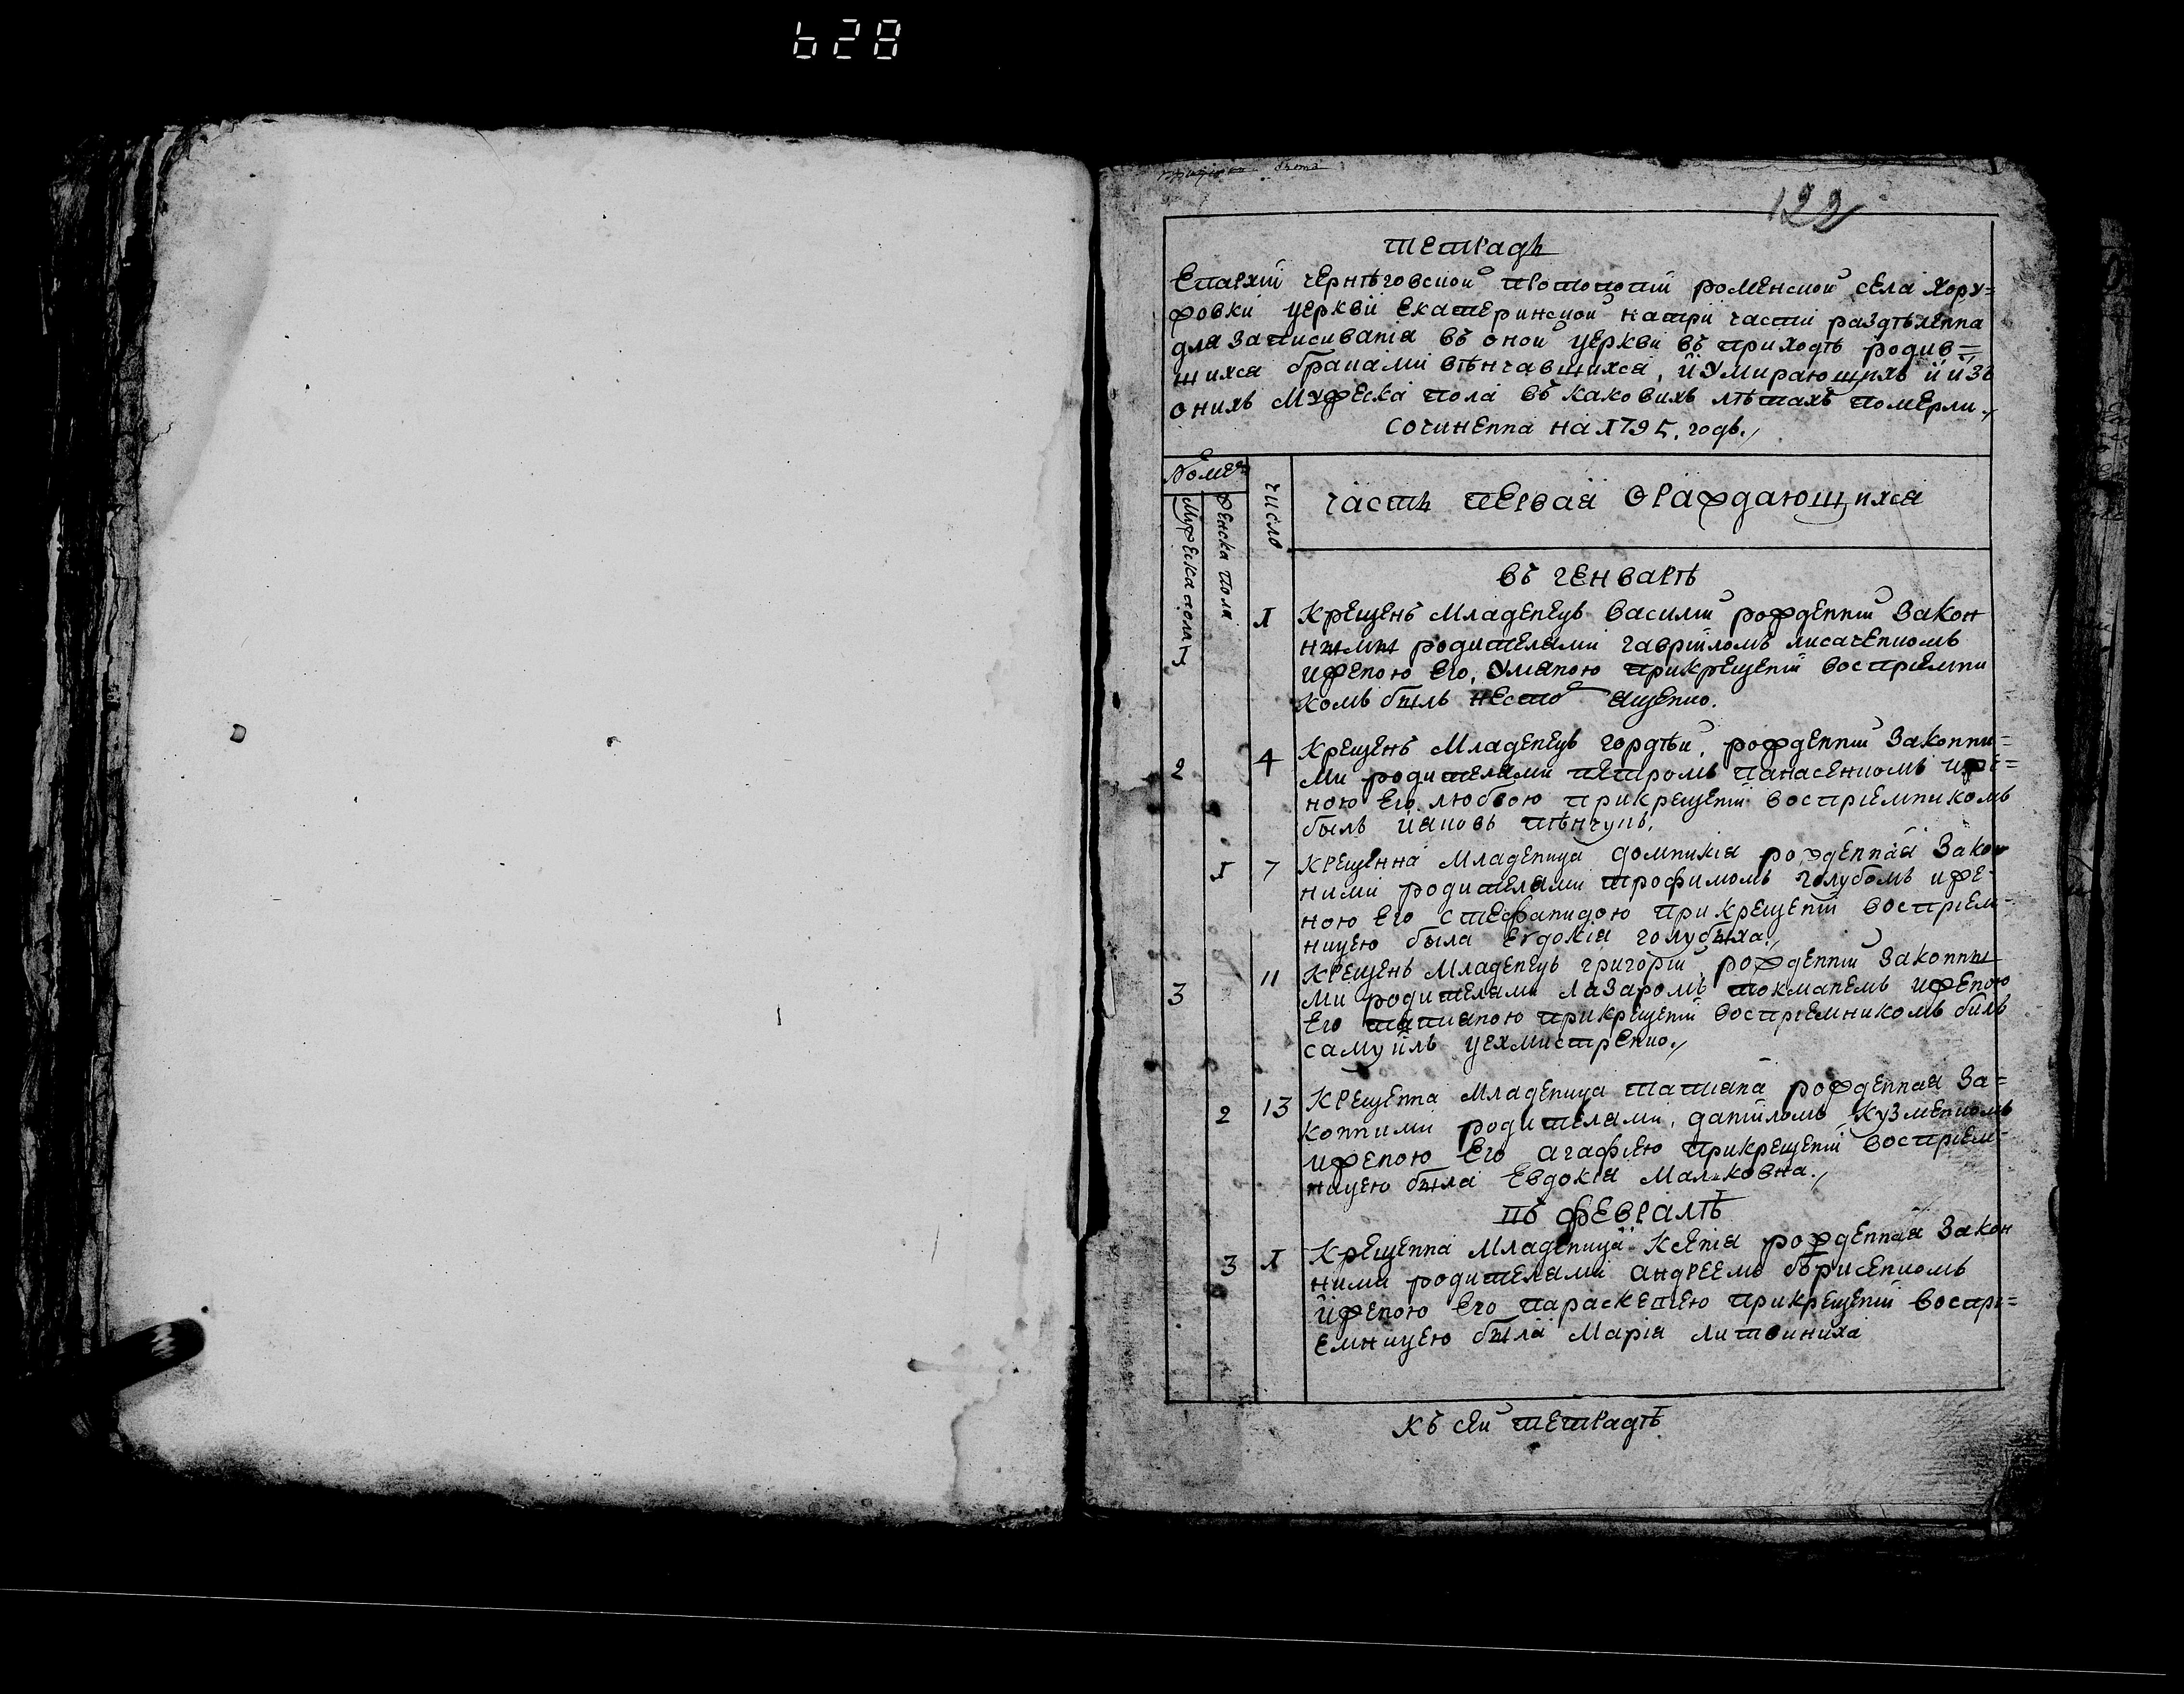 628
122
тетрадь
Епархіи чернѣговской протопопіи роменской села Хору-
жовки церкви екатеринской натри части раздѣленна
для записиванія въ оной церкви въ приходѣ родив=
шихся браками вѣнчавшихся, и умирающихъ и изъ
онихъ мужеска пола въ каковихъ лѣтахъ померли
сочиненна на 1795. годъ
Номер
Мужеска пола
женска пола
число
часть первая о раждающихся
въ генварѣ
1 1 Крещенъ младенецъ василий рожденний закон
нжми родителями гаврииломъ лисаченкомъ
иженою его, Уляною прикрещении восприемни
комъ былъ несто ященко.
2 4 Крещенъ младенецъ гордѣй, рожденний законни=
ми родителями петромъ панасенкомъ иже=
ною его любвою прикрещении восприемникомъ
былъ
1 7 крещенна младеница домникія рожденная закон
ними родителями трофимомъ голубомъ иже-
ною его стефанидою прикрещении восприем-
ницею была евдокія голубыха
3 11 крещенъ младенецъ григорій рожденний законны
ми родителями лазаромъ токманемъ иженою
его татианою прикрещении восприемникомъ билъ
самуйлъ цехмистренко
2 13 крещенна младеница татиана рожденная за=
конними родителями, данииломъ кузменкомъ
иженою его агафиею прикрещении восприем-
ницею была Евдокія Мальковна
въ февралѣ
3 1 Крещенна младеница Ксенія рожденная закон
ними родителями андреемъ борисенкомъ
иженою его параскевиею прикрещении воспри=
емницею была Марія литвиниха
къ сей тетрадѣ